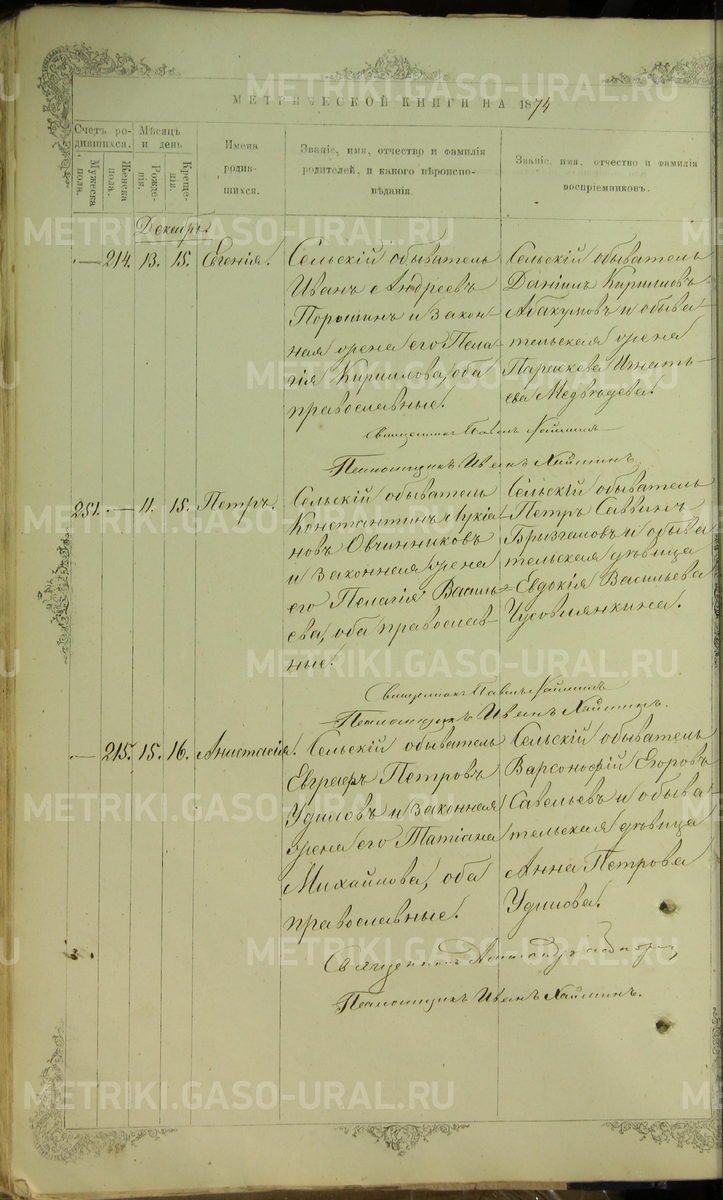 МЕТРИЧЕСКОЙ КНИГИ НА 1874
Счетъ родившихся.
Мужеска пола.
Женска пола.
Мѣсяцъ и день
Рожденія.
Крещенія.
Имена родившихся.
Званіе, имя, отчество и фамилія родителей, и какого вѣроисповѣданія.
Званіе, имя, отчество и фамилія воспріемниковъ.
Декабрь.
— 214. 13. 15. Евгенія.
Сельскій обыватель
Иванъ Андреевъ
Порошинъ и закон-
ная жена его Пела-
гія Кириллова, оба
православные.
Сельскій обыватель
Даніилъ Кирилловъ
Абакумовъ и обыва-
тельская жена
Параскева Игнать-
ева Медвѣдева.
Священникъ
Псаломщикъ Иванъ Хайминъ.
251. — 11. 15. Петръ.
Сельскій обыватель
Константинъ Лукіа-
новъ Овчинниковъ
и законная жена
его Пелагія Василь-
ева, оба православ-
ные.
Сельскій обыватель
Петръ Саввинъ
Бризгаловъ и обыва-
тельская дѣвица
Евдокія Васильева
Чусовлянкина.
Священникъ Павелъ
Псаломщикъ Иванъ Хайминъ.
— 215. 15. 16. Анастасія.
Сельскій обыватель
Евграфъ Петровъ
Удиловъ и законная
жена его Татіана
Михайлова, оба
православные.
Сельскій обыватель
Варсонофій Егоровъ
Савельевъ и обыва-
тельская дѣвица
Анна Петрова
Удилова.
Священникъ
Псаломщикъ Иванъ Хайминъ.
METRIKI.GASO-URAL.RU